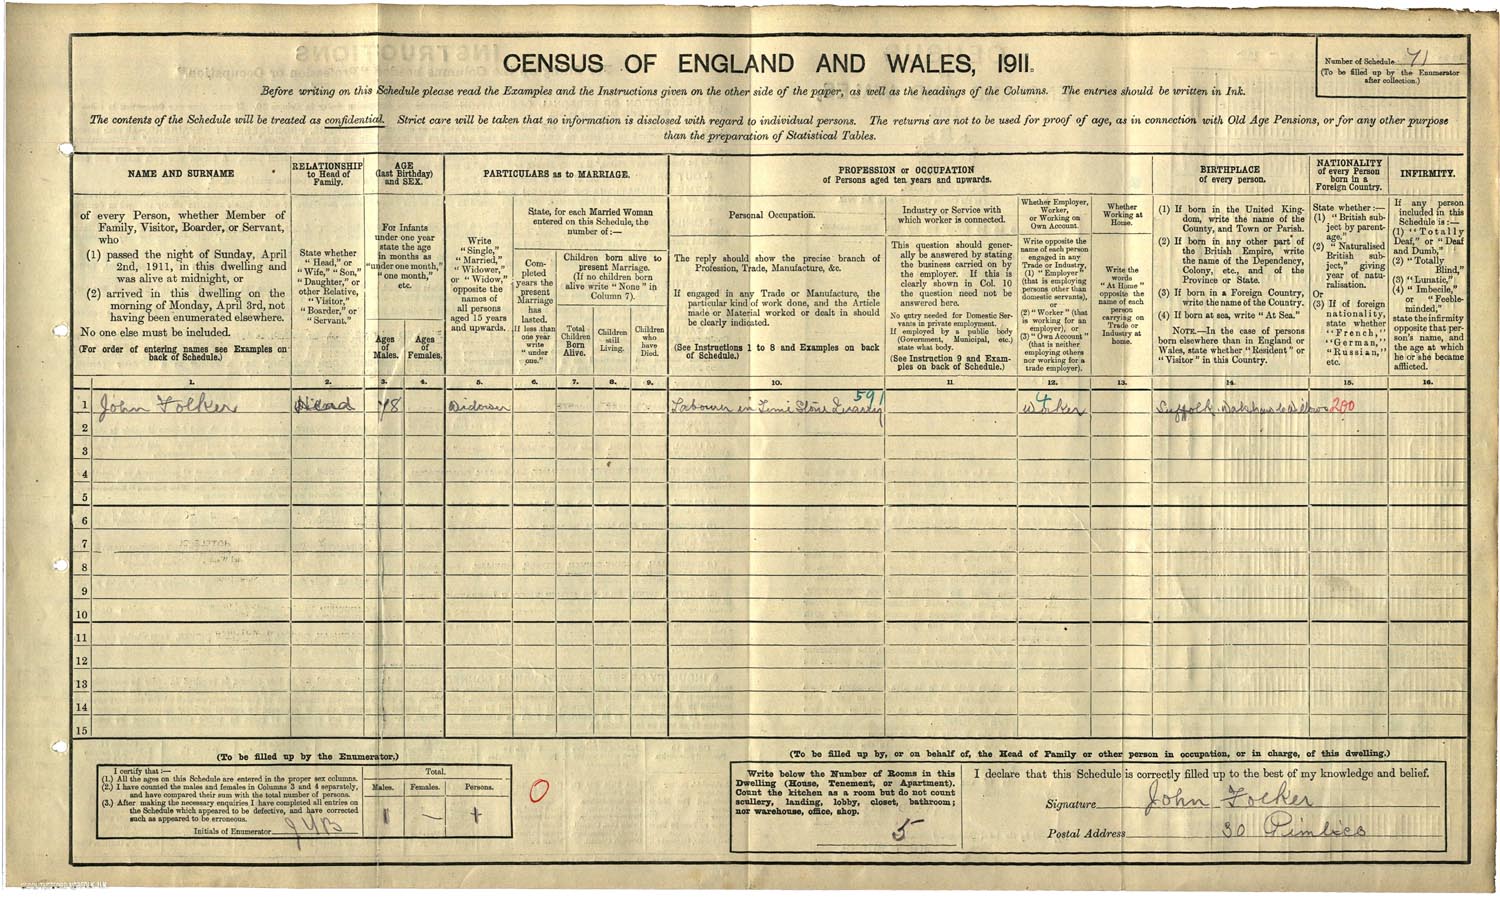 CENSUS OF ENGLAND AND WALES, 1911.
Number of Schedule 71
(To be filled up by the Enumerator
after collection.)
Before writing on this Schedule please read the Examples and the Instructions given on the other side of the paper, as well as the headings of the Columns. The entries should be written in Ink.
The contents of the Schedule will be treated as confidential. Strict care will be taken that no information is disclosed with regard to individual persons. The returns are not to be used for proof of age, as in connection with Old Age Pensions, or for any other purpose
than the preparation of Statistical Tables.
NAME AND SURNAME
of every Person, whether Member of
Family, Visitor, Boarder, or Servant,
who
(1) passed the night of Sunday, April
2nd, 1911, in this dwelling and
was alive at midnight, or
(2) arrived in this dwelling on the
morning of Monday, April 3rd, not
having been enumerated elsewhere.
No one else must be included.
(For order of entering names see Examples on
back of Schedule.)
RELATIONSHIP
to Head of
Family.
State whether
"Head," or
"Wife," "Son,"
"Daughter," or
other Relative,
"Visitor,"
"Boarder," or
"Servant."
AGE
(last Birthday)
and SEX.
For Infants
under one year
state the age
in months as
"under one month,"
"one month,"
etc.
Ages
of
Males.
Ages
of
Females.
PARTICULARS as to MARRIAGE.
Write
"Single,"
"Married,"
"Widower,"
or "Widow,"
opposite the
names of
all persons
aged 15 years
and upwards.
State, for each Married Woman
entered on this Schedule, the
number of:—
Com-
pleted
years the
present
Marriage
has
lasted.
If less than
one year
write
"under
one."
Children born alive to
present Marriage.
(If no children born
alive write "None" in
Column 7).
Total
Children
Born
Alive.
Children
still
Living.
Children
who
have
Died.
PROFESSION or OCCUPATION
of Persons aged ten years and upwards.
Personal Occupation.
The reply should show the precise branch of
Profession, Trade, Manufacture, &c.
If engaged in any Trade or Manufacture, the
particular kind of work done, and the Article
made or Material worked or dealt in should
be clearly indicated.
(See Instructions 1 to 8 and Examples on back
of Schedule.)
Industry or Service with
which worker is connected.
This question should gener-
ally be answered by stating
the business carried on by
the employer. If this is
clearly shown in Col. 10
the question need not be
answered here.
No entry needed for Domestic Ser-
vants in private employment.
If employed by a public body
(Government, Municipal, etc.)
state what body.
(See Instruction 9 and Exam-
ples on back of Schedule.)
Whether Employer,
Worker,
or Working on
Own Account.
Write opposite the
name of each person
engaged in any
Trade or Industry,
(1) "Employer"
(that is employing
persons other than
domestic servants),
or
(2) "Worker" (that
is working for an
employer), or
(3) "Own Account"
(that is neither
employing others
nor working for a
trade employer).
Whether
Working at
Home.
Write the
words
"At Home"
opposite the
name of each
person
carrying on
Trade or
Industry at
home.
BIRTHPLACE
of every person.
(1) If born in the United King-
dom, write the name of the
County, and Town or Parish.
(2) If born in any other part of
the British Empire, write
the name of the Dependency,
Colony, etc., and of the
Province or State.
(3) If born in a Foreign Country,
write the name of the Country.
(4) If born at sea, write "At Sea."
NOTE.—In the case of persons
born elsewhere than in England or
Wales, state whether "Resident" or
"Visitor" in this Country.
NATIONALITY
of every Person
born in a
Foreign Country.
State whether:—
(1) "British sub-
ject by parent-
age."
(2) "Naturalised
British sub-
ject," giving
year of natu-
ralisation.
Or
(3) If of foreign
nationality,
state whether
"French,"
"German,"
"Russian,"
etc.
INFIRMITY.
If any person
included in this
Schedule is:—
(1) "Totally
Deaf," or "Deaf
and Dumb,"
(2) "Totally
Blind,"
(3) "Lunatic,"
(4) "Imbecile,"
or "Feeble-
minded,"
state the infirmity
opposite that per-
son's name, and
the age at which
he or she became
afflicted.
1. 2. 3. 4. 5. 6. 7. 8. 9. 10. 11 12. 13. 14. 15. 16.
591 4
1 John Folker Head 78 Widower Labourer in Lime Stone Quarry Worker Suffolk Walsham le Willows 200
2
3
4
5
6
7
8
9
10
11
12
13
14
15
(To be filled up by the Enumerator.)
I certify that:—
(1.) All the ages on this Schedule are entered in the proper sex columns.
(2.) I have counted the males and females in Columns 3 and 4 separately,
and have compared their sum with the total number of persons.
(3.) After making the necessary enquiries I have completed all entries on
the Schedule which appeared to be defective, and have corrected
such as appeared to be erroneous.
Initials of Enumerator
Total.
Males. Females. Persons.
1 — 1
0
(To be filled up by, or on behalf of, the Head of Family or other person in occupation, or in charge, of this dwelling.)
Write below the Number of Rooms in this
Dwelling (House, Tenement, or Apartment).
Count the kitchen as a room but do not count
scullery, landing, lobby, closet, bathroom;
nor warehouse, office, shop.
5
I declare that this Schedule is correctly filled up to the best of my knowledge and belief.
Signature John Folker
Postal Address 30 Pimlico